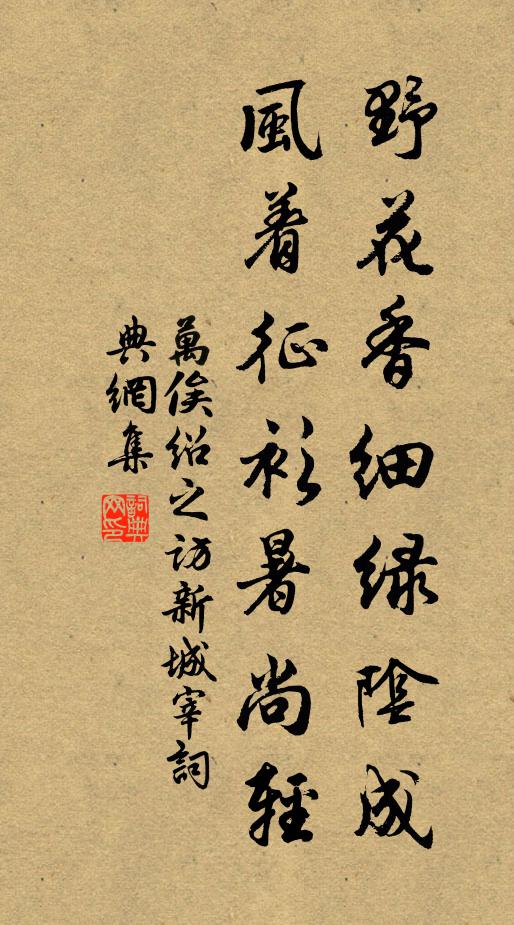 野花香细绿陰成
風着征衫暑尚輕
萬俟绍之访新城宰詞
典網集
詞典网印